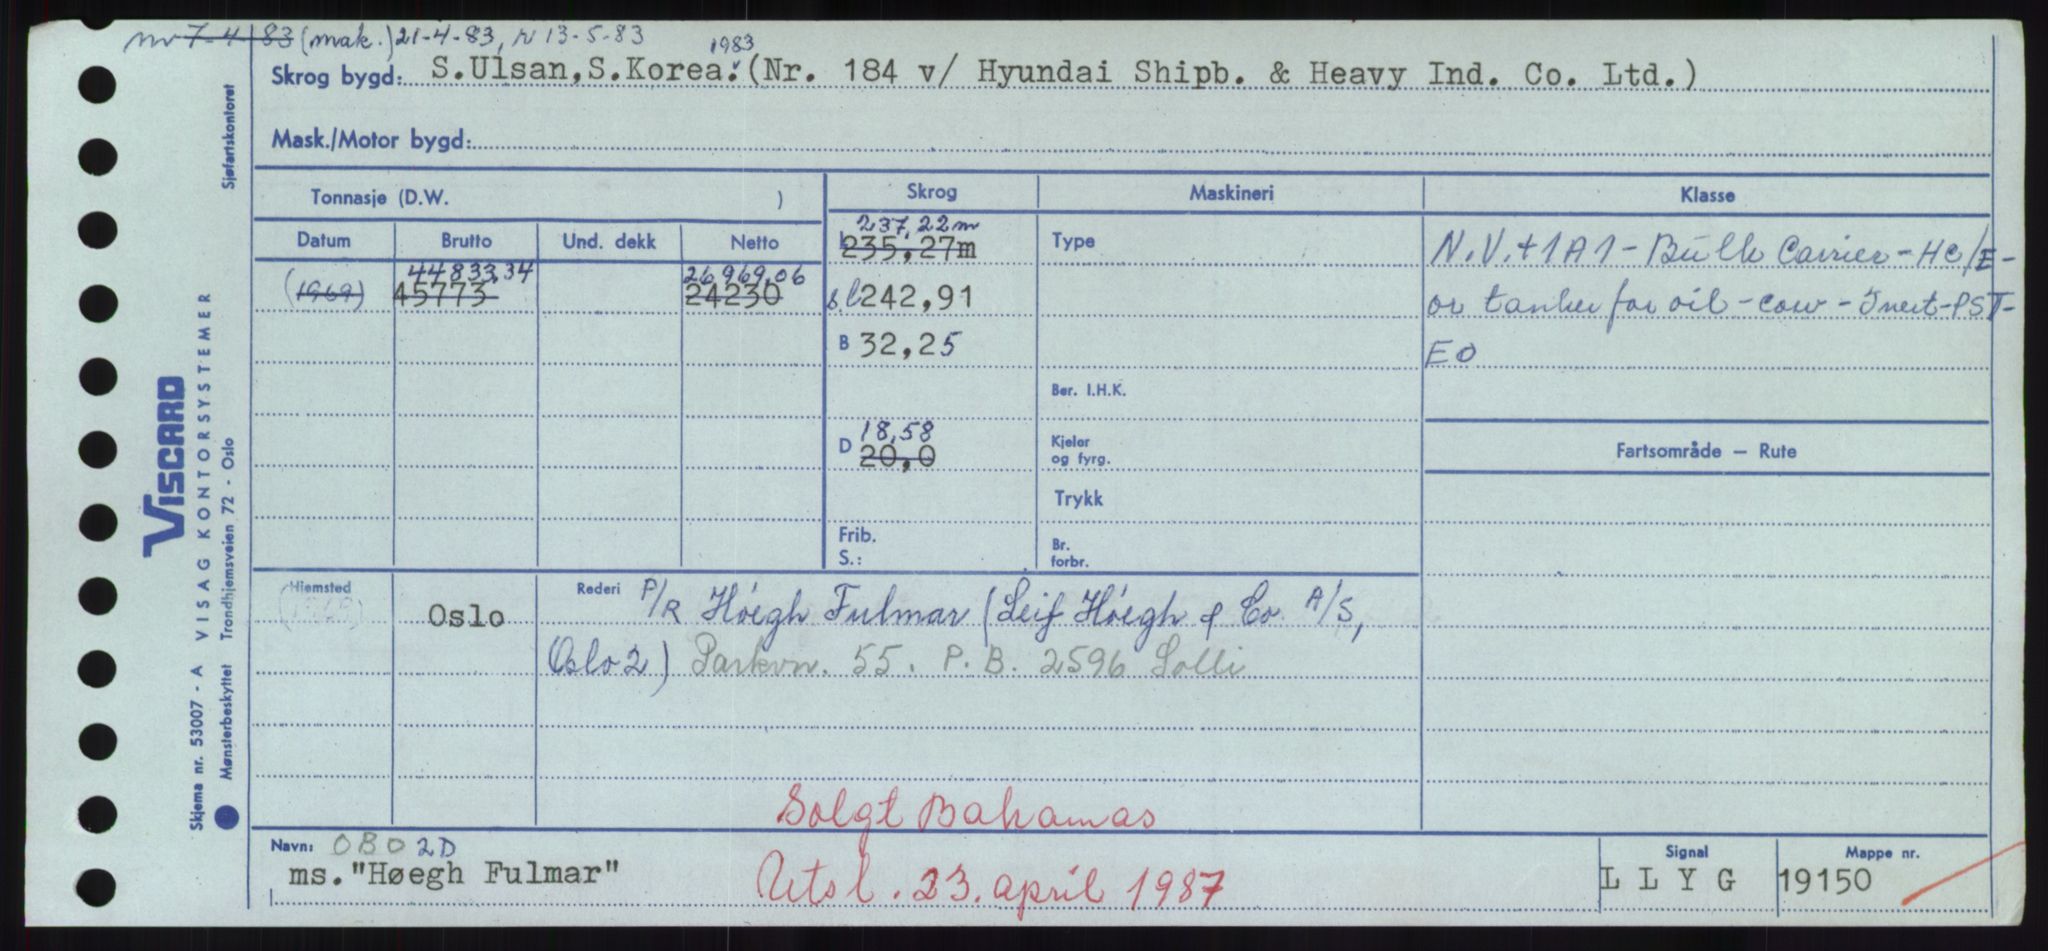 nv 7-4-83 (mak.) 21-4-83, r 13-5-83
1983
Skrog bygd: S.Ulsan,S.Korea. (Nr. 184 v/ Hyundai Shipb. & Heavy Ind. Co. Ltd.)
Mask./Motor bygd:
Tonnasje (D.W. )
Skrog
Maskineri
Klasse
Datum Brutto Und. dekk Netto
(1969)
44833,34
45773
26969,06
24230
237,22m
L 235,27m
s.l 242,91
B 32,25
18,58
D 20,0
Frib.
S.:
Type
Ber. I.H.K.
Kjeler
og fyrg.
Trykk
Br.
forbr.
N.V.+1A1-Bulk Carrier-HC/E-
or tanker for oil-cow-Inert-PST-
EO
Fartsområde – Rute
Hjemsted
(1969)
Oslo
Rederi P/R Höegh Fulmar (Leif Höegh & Co A/S,
Oslo 2) Parkvn. 55. P.B. 2596 Solli
Solgt Bahamas
Utsl. 23. april 1987
Navn: OBO 2D
ms."Høegh Fulmar"
Signal
L L Y G
Mappe nr.
19150
Sjøfartskontoret
VISCARD
VISAG KONTORSYSTEMER
Trondhjemsveien 72 - Oslo
Skjema nr. 53007 - A
Mønsterbeskyttet